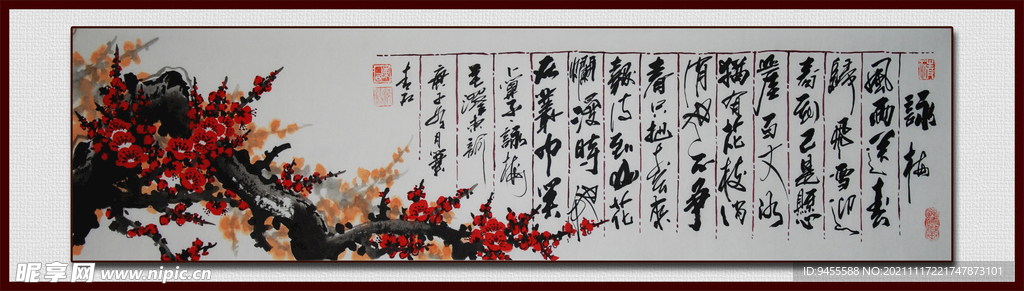 詠梅
風雨送春
歸飛雪迎
春到已是懸
崖百丈冰
猶有花枝俏
俏也不爭
春只把春來
報待到山花
爛漫時她
在叢中笑
卜算子詠梅
毛澤東詞
庚子月
昵享网 www.nipic.cn
ID:9455588 NO:20211117221747873101